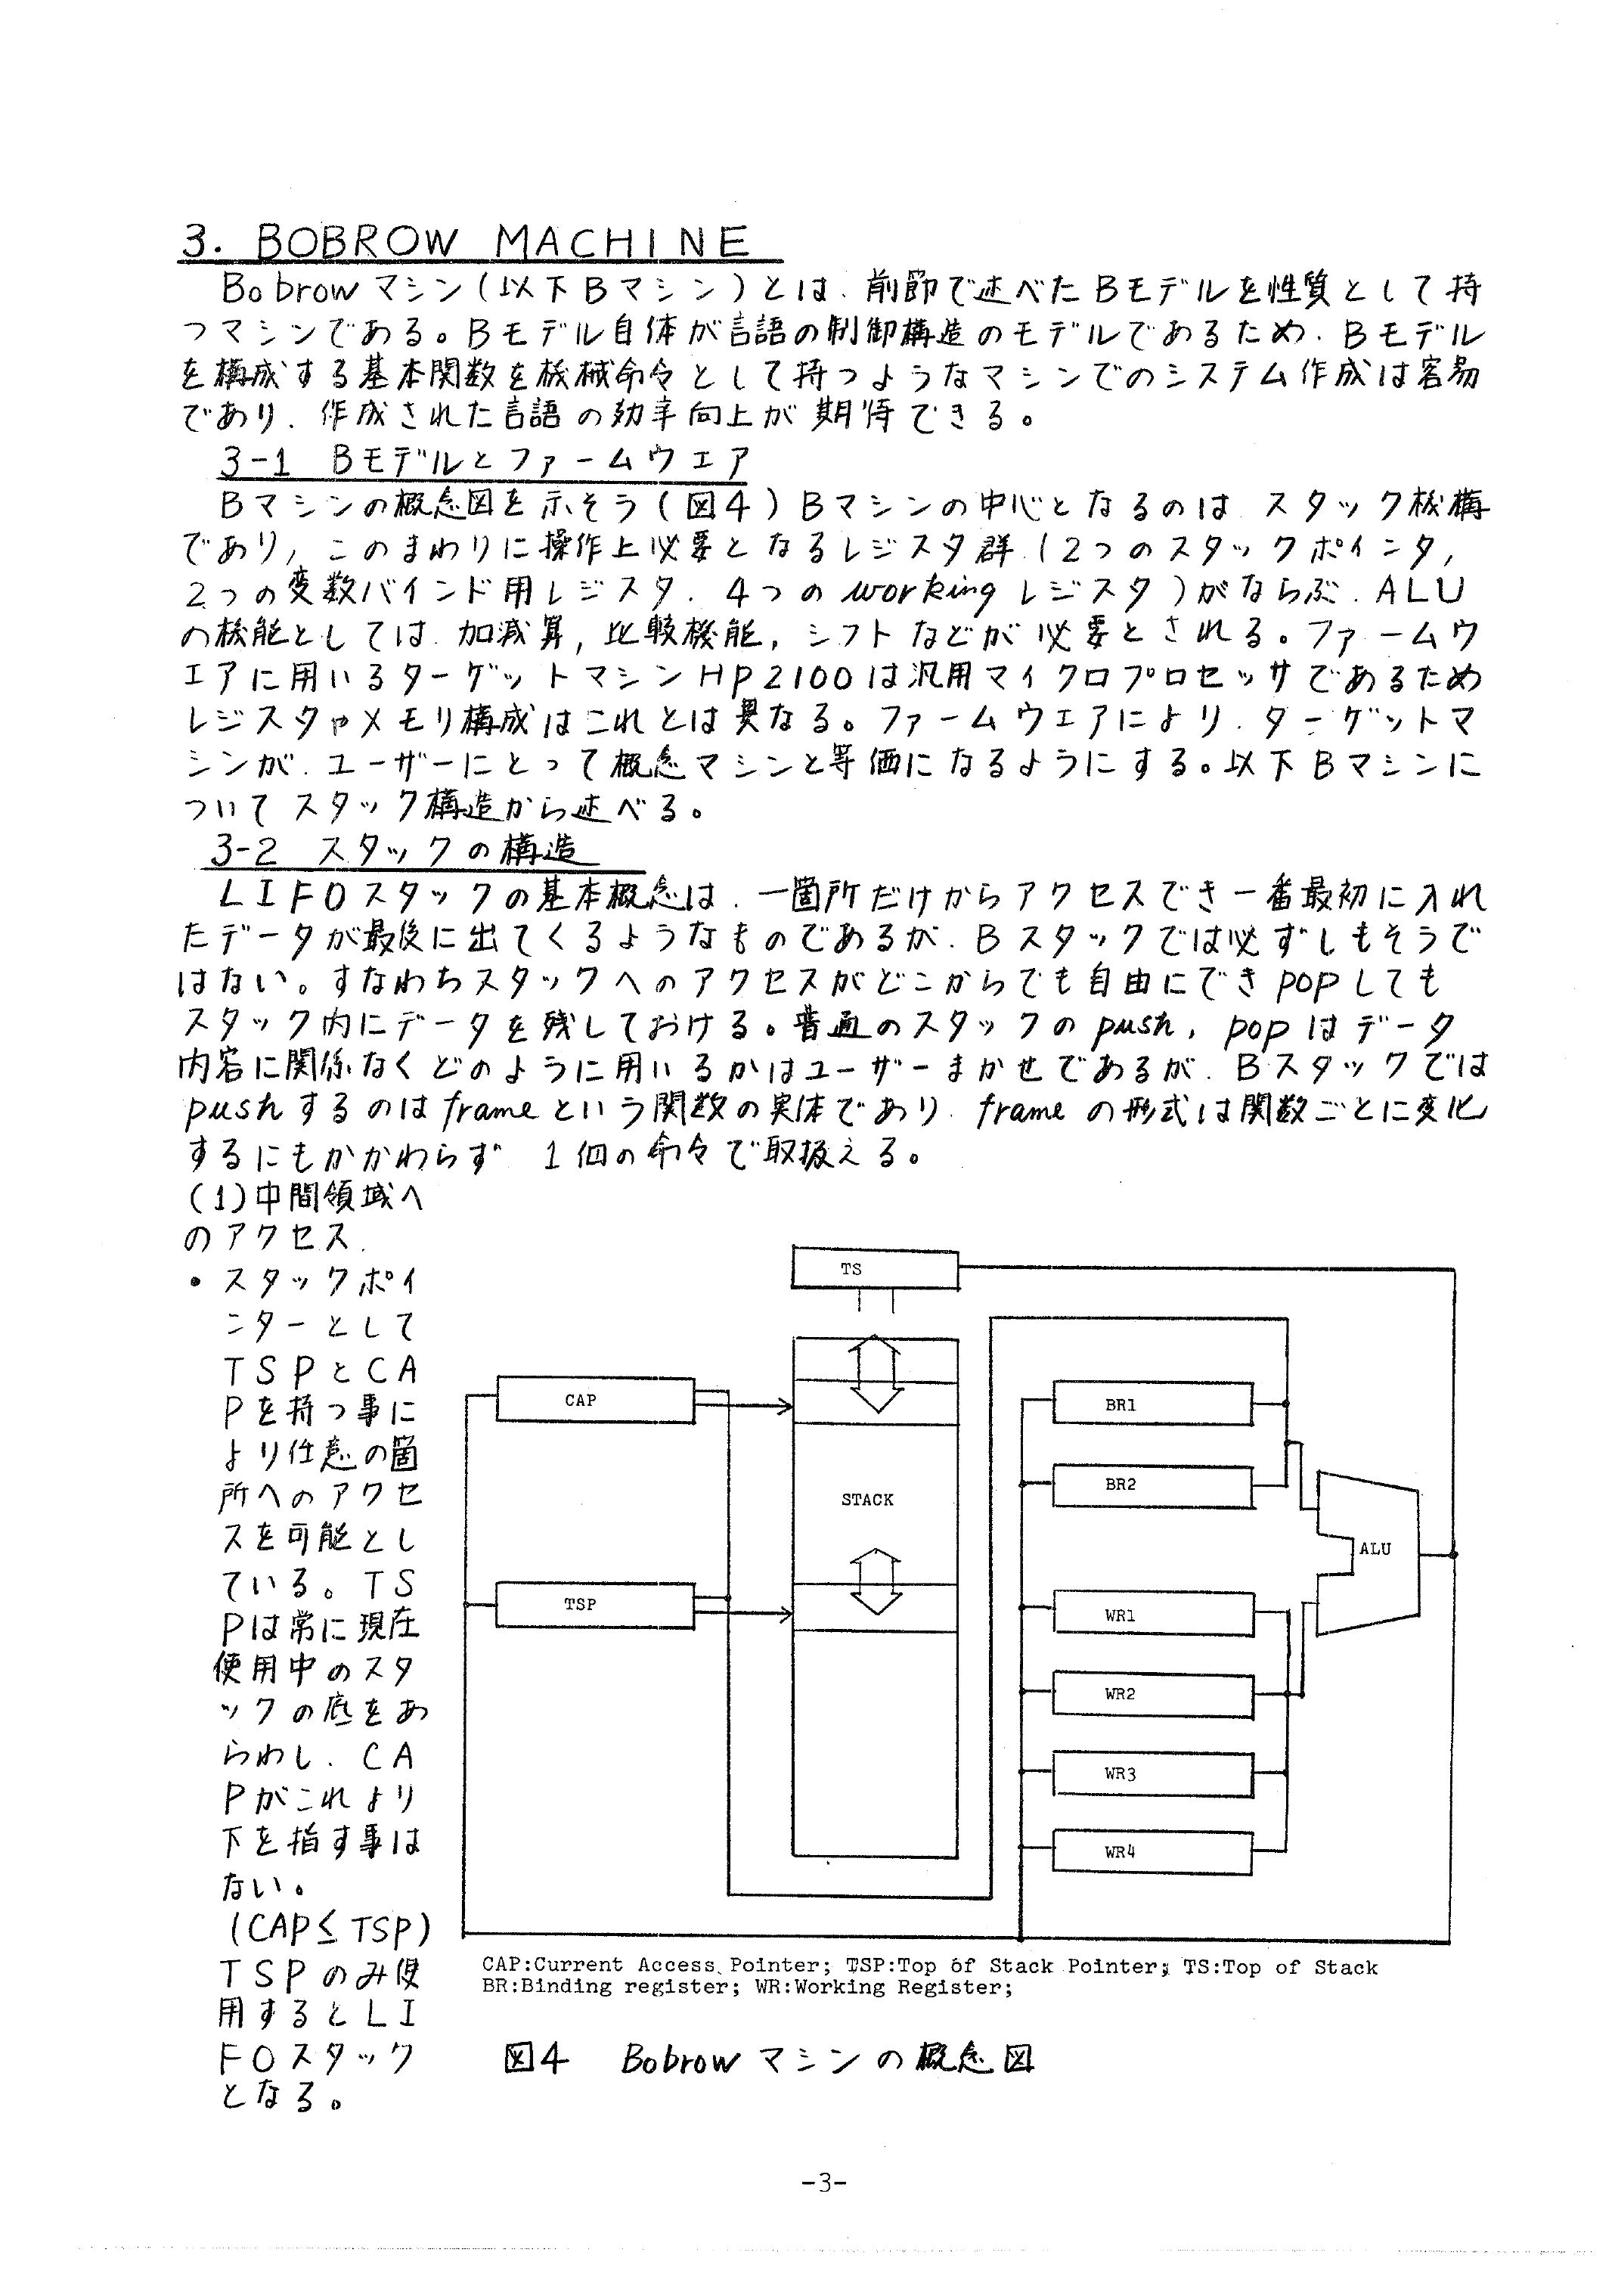 3. BOBROW MACHINE
Bobrowマシン(以下Bマシン)とは、前節で述べたBモデルを性質として持
つマシンである。Bモデル自体が言語の制御構造のモデルであるため、Bモデル
を構成する基本関数を機械命令として持つようなマシンでのシステム作成は容易
であり、作成された言語の効率向上が期待できる。
3-1 Bモデルとファームウェア
Bマシンの概念図を示そう(図4)Bマシンの中心となるのは スタック機構
であり, このまわりに操作上必要となるレジスタ群(2つのスタックポインタ,
2つの変数バインド用レジスタ、4つのworkingレジスタ)がならぶ、ALU
の機能としては 加減算, 比較機能, シフトなどが必要とされる。ファームウ
エアに用いるターゲットマシンHP2100は汎用マイクロプロセッサであるため
レジスタやメモリ構成はこれとは異なる。ファームウエアにより、ターゲットマ
シンが、ユーザーにとって概念マシンと等価になるようにする。以下Bマシンに
ついてスタック構造から述べる。
3-2 スタックの構造
LIFOスタックの基本概念は、一箇所だけからアクセスでき一番最初に入れ
たデータが最後に出てくるようなものであるが、Bスタックでは必ずしもそうで
はない。すなわちスタックへのアクセスがどこからでも自由にできpopしても
スタック内にデータを残しておける。普通のスタックのpush, popはデータ
内容に関係なくどのように用いるかはユーザーまかせであるが、Bスタックでは
pushするのはframeという関数の実体であり、frameの形式は関数ごとに変化
するにもかかわらず 1個の命令で取扱える。
(1)中間領域へ
のアクセス
• スタックポイ
ンターとして
TSPとCA
Pを持つ事に
より任意の箇
所へのアクセ
スを可能とし
ている。TS
Pは常に現在
使用中のスタ
ックの底をあ
らわし、CA
Pがこれより
下を指す事は
ない。
(CAP≤TSP)
TSPのみ使
用するとLI
FOスタック
となる。
TS
CAP
BR1
BR2
STACK
ALU
TSP
WR1
WR2
WR3
WR4
CAP:Current Access Pointer; TSP:Top of Stack Pointer; TS:Top of Stack
BR:Binding register; WR:Working Register;
図4 Bobrowマシンの概念図
-3-